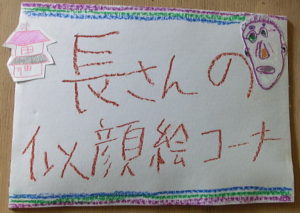 長さんの
似顔絵コーナ